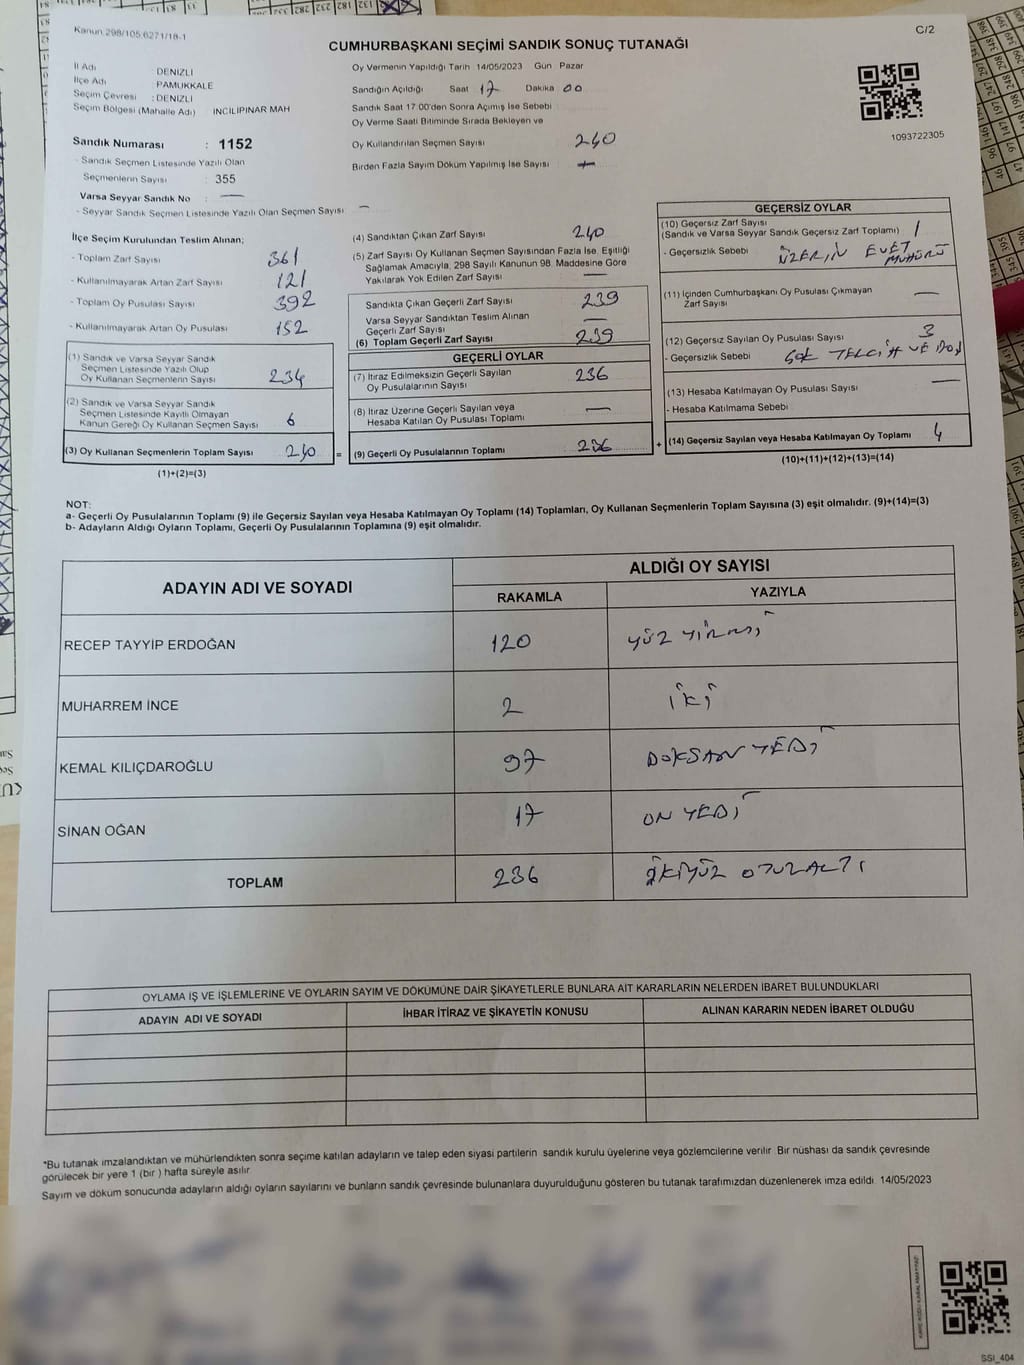 Kanun 298/105.6271/18-1
C/2
CUMHURBAŞKANI SEÇİMİ SANDIK SONUÇ TUTANAĞI
İl Adı DENİZLİ
İlçe Adı PAMUKKALE
Seçim Çevresi : DENİZLİ
Seçim Bölgesi (Mahalle Adı) İNCİLİPINAR MAH
Oy Vermenin Yapıldığı Tarih 14/05/2023 Gün Pazar
Sandığın Açıldığı Saat 17 Dakika 00
Sandık Saat 17:00'den Sonra Açımış İse Sebebi
Oy Verme Saati Bitiminde Sırada Bekleyen ve
Oy Kullandırılan Seçmen Sayısı 240
Birden Fazla Sayım Döküm Yapılmış İse Sayısı
1093722305
Sandık Numarası : 1152
- Sandık Seçmen Listesinde Yazılı Olan
Seçmenlerin Sayısı : 355
Varsa Seyyar Sandık No : —
- Seyyar Sandık Seçmen Listesinde Yazılı Olan Seçmen Sayısı : —
İlçe Seçim Kurulundan Teslim Alınan;
- Toplam Zarf Sayısı 361
- Kullanılmayarak Artan Zarf Sayısı 121
- Toplam Oy Pusulası Sayısı 392
- Kullanılmayarak Artan Oy Pusulası 152
(1) Sandık ve Varsa Seyyar Sandık
Seçmen Listesinde Yazılı Olup
Oy Kullanan Seçmenlerin Sayısı 234
(2) Sandık ve Varsa Seyyar Sandık
Seçmen Listesinde Kayıtlı Olmayan
Kanun Gereği Oy Kullanan Seçmen Sayısı 6
(3) Oy Kullanan Seçmenlerin Toplam Sayısı 240 =
(1)+(2)=(3)
(4) Sandıktan Çıkan Zarf Sayısı 240
(5) Zarf Sayısı Oy Kullanan Seçmen Sayısından Fazla İse, Eşitliği
Sağlamak Amacıyla, 298 Sayılı Kanunun 98. Maddesine Göre
Yakılarak Yok Edilen Zarf Sayısı —
Sandıkta Çıkan Geçerli Zarf Sayısı 239
Varsa Seyyar Sandıktan Teslim Alınan
Geçerli Zarf Sayısı —
(6) Toplam Geçerli Zarf Sayısı 239
GEÇERLİ OYLAR
(7) İtiraz Edilmeksizin Geçerli Sayılan
Oy Pusulalarının Sayısı 236
(8) İtiraz Üzerine Geçerli Sayılan veya
Hesaba Katılan Oy Pusulası Toplamı —
(9) Geçerli Oy Pusulalarının Toplamı 236 +
GEÇERSİZ OYLAR
(10) Geçersiz Zarf Sayısı
(Sandık ve Varsa Seyyar Sandık Geçersiz Zarf Toplamı) 1
- Geçersizlik Sebebi ÜZERİN EVET
MÜHÜRÜ
(11) İçinden Cumhurbaşkanı Oy Pusulası Çıkmayan
Zarf Sayısı —
(12) Geçersiz Sayılan Oy Pusulası Sayısı 3
- Geçersizlik Sebebi ÇOK TERCİH VE BOŞ
(13) Hesaba Katılmayan Oy Pusulası Sayısı —
- Hesaba Katılmama Sebebi
(14) Geçersiz Sayılan veya Hesaba Katılmayan Oy Toplamı 4
(10)+(11)+(12)+(13)=(14)
NOT:
a- Geçerli Oy Pusulalarının Toplamı (9) ile Geçersiz Sayılan veya Hesaba Katılmayan Oy Toplamı (14) Toplamları, Oy Kullanan Seçmenlerin Toplam Sayısına (3) eşit olmalıdır. (9)+(14)=(3)
b- Adayların Aldığı Oyların Toplamı, Geçerli Oy Pusulalarının Toplamına (9) eşit olmalıdır.
ADAYIN ADI VE SOYADI
ALDIĞI OY SAYISI
RAKAMLA YAZIYLA
RECEP TAYYİP ERDOĞAN 120 YÜZ YİRMİ
MUHARREM İNCE 2 İKİ
KEMAL KILIÇDAROĞLU 97 DOKSAN YEDİ
SİNAN OĞAN 17 ON YEDİ
TOPLAM 236 İKİYÜZ OTUZALTI
OYLAMA İŞ VE İŞLEMLERİNE VE OYLARIN SAYIM VE DÖKÜMÜNE DAİR ŞİKAYETLERLE BUNLARA AİT KARARLARIN NELERDEN İBARET BULUNDUKLARI
ADAYIN ADI VE SOYADI İHBAR İTİRAZ VE ŞİKAYETİN KONUSU ALINAN KARARIN NEDEN İBARET OLDUĞU
*Bu tutanak imzalandıktan ve mühürlendikten sonra seçime katılan adayların ve talep eden siyasi partilerin sandık kurulu üyelerine veya gözlemcilerine verilir. Bir nüshası da sandık çevresinde
görülecek bir yere 1 (bir ) hafta süreyle asılır.
Sayım ve döküm sonucunda adayların aldığı oyların sayılarını ve bunların sandık çevresinde bulunanlara duyurulduğunu gösteren bu tutanak tarafımızdan düzenlenerek imza edildi. 14/05/2023
KARE KODU KARALAMAYINIZ!
SSI_404